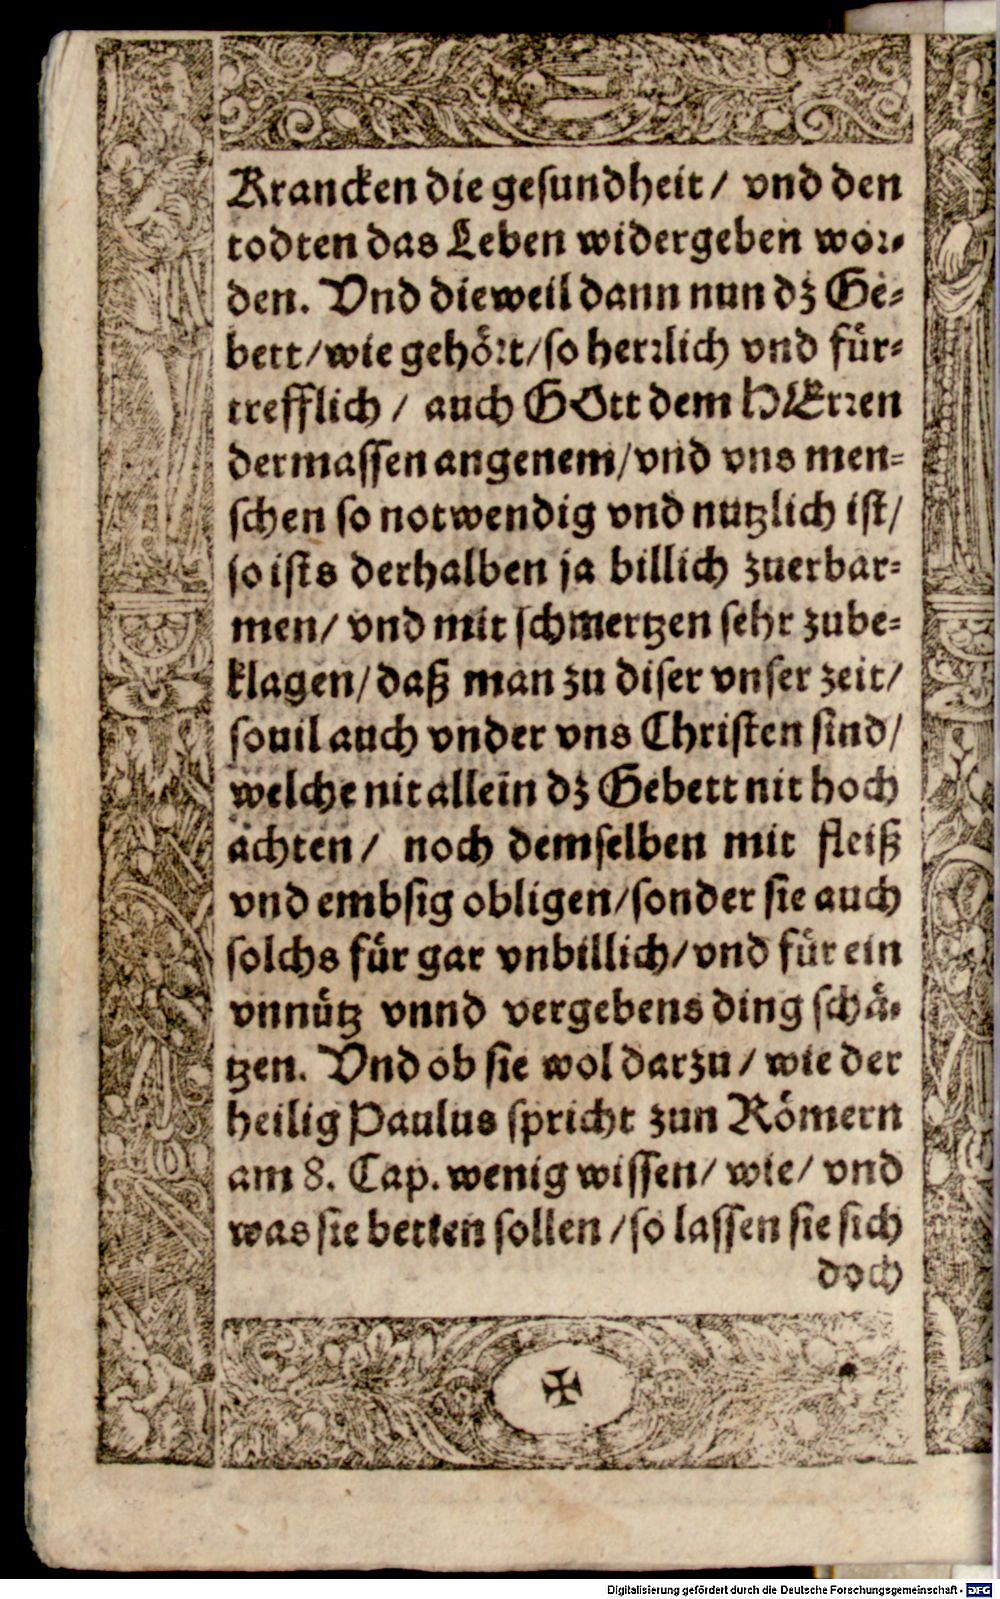 Krancken die gesundheit/ vnd den
todten das Leben widergeben wor-
den. Vnd dieweil dann nun dz Ge-
bett/wie gehört/so herrlich vnd für-
trefflich/ auch GOtt dem HErren
dermassen angenem/vnd vns men-
schen so notwendig vnd nutzlich ist/
so ists derhalben ja billich zuerbar-
men/ vnd mit schmertzen sehr zube-
klagen/daß man zu diser vnser zeit/
souil auch vnder vns Christen sind/
welche nit allein dz Gebett nit hoch
achten/ noch demselben mit fleiß
vnd embsig obligen/sonder sie auch
solchs für gar vnbillich/vnd für ein
vnnütz vnnd vergebens ding schä-
tzen. Vnd ob sie wol darzu/ wie der
heilig Paulus spricht zun Römern
am 8. Cap. wenig wissen/ wie/ vnd
was sie betten sollen/so lassen sie sich
doch
Digitalisierung gefördert durch die Deutsche Forschungsgemeinschaft - DFG